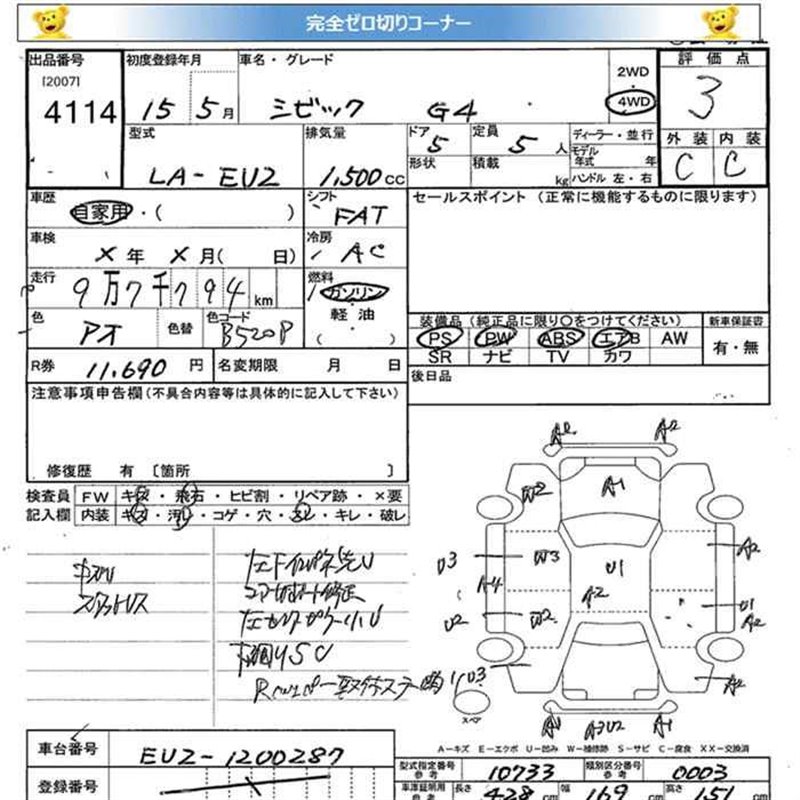 完全ゼロ切りコーナー
出品番号 初度登録年月 車名・グレード 2WD 評価点
[2007]
4114 15 5月 シビック G4 4WD 3
型式 排気量 ドア 5 定員 5人 ディーラー・並行 外装 内装
モデル年式 年
LA-EU2 1,500cc 形状 積載 kg ハンドル 左・右 C C
車歴 自家用・( ) シフト FAT セールスポイント (正常に機能するものに限ります)
車検 X年 X月( 日) 冷房 AC
走行 9万7千794km 燃料 ガソリン
軽油
( )
色 色替 色コード B520P
装備品 (純正品に限り○をつけてください) 新車保証書
PS PW ABS エアB AW 有・無
SR ナビ TV カワ
R券 11,690円 名変期限 月 日 後日品
注意事項申告欄(不具合内容等は具体的に記入して下さい)
修復歴 有 〔箇所 〕
検査員 FW キズ・飛石・ヒビ割・リペア跡・×要
記入欄 内装 キズ・汚レ・コゲ・穴・スレ・キレ・破レ
A2 A2
W2 A1
U3 W3 U1 A2
A4 A2 U1
U2 W2 A2
U3 A2
スペア
A1 A3U2 A1
A-キズ E-エクボ U-凹み W-補修跡 S-サビ C-腐食 XX-交換済
車台番号 EU2-1200287
登録番号
型式指定番号 参考 10733 類別区分番号 参考 0003
車庫証明用 参考 長さ 428cm 幅 169cm 高さ 151cm